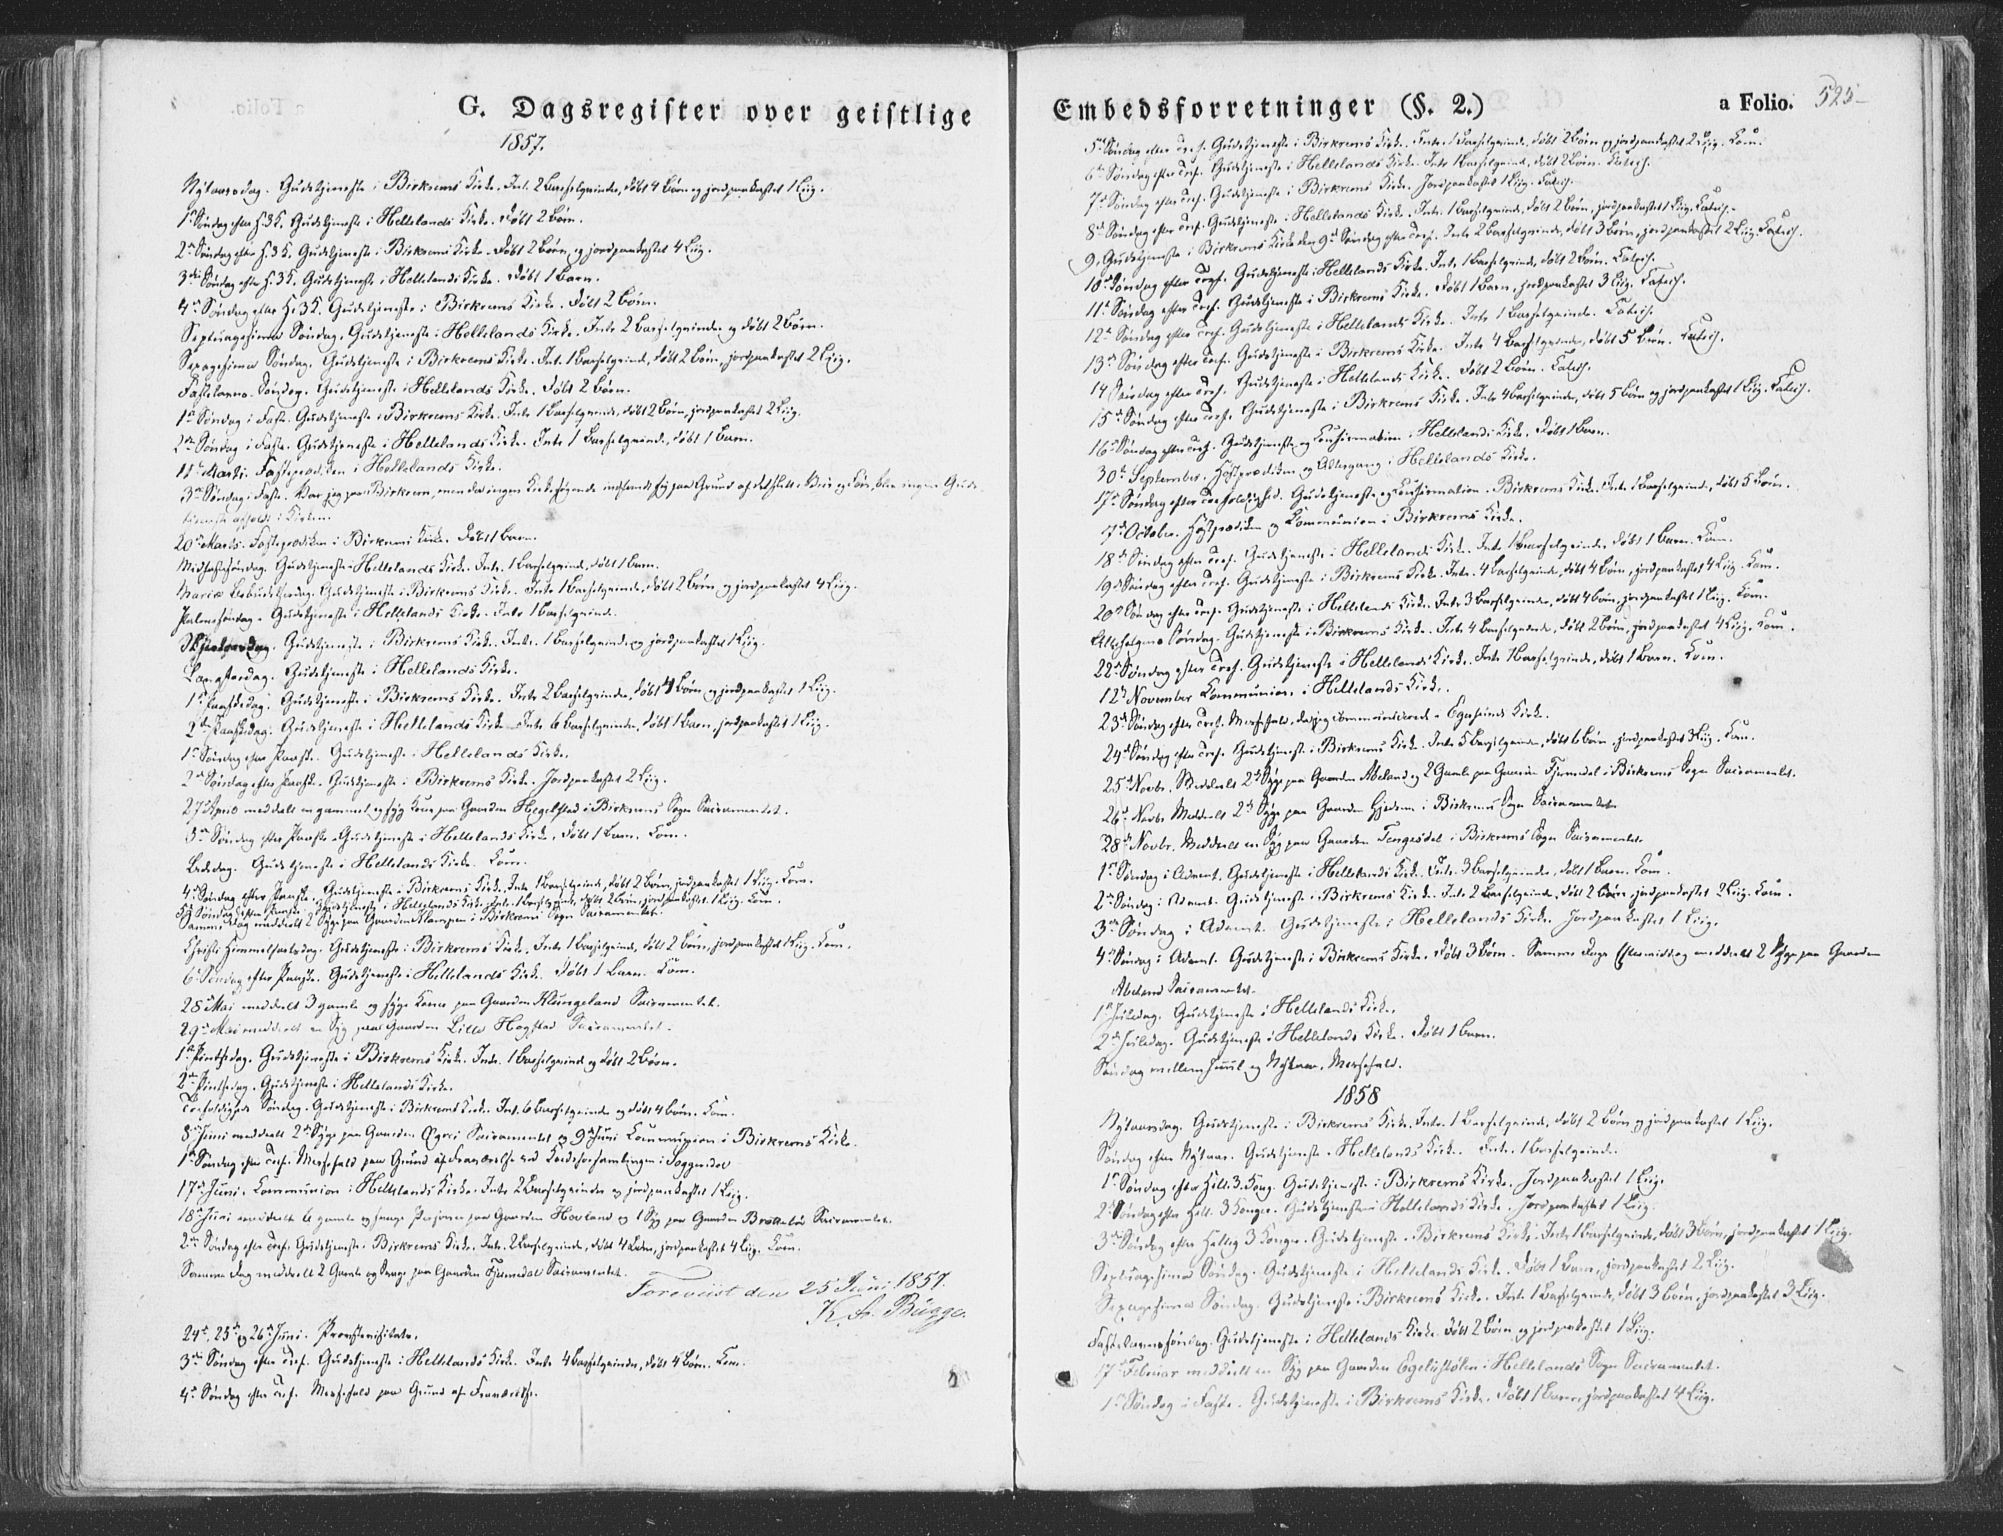 G. Dagsregister over geistlige
1857.
Nytaarsdag. Gudstjeneste i Birkrems Kirke. Intr. 2 Barselqvinder, døbt 4 Børn og jordpaakastet 1 Liig.
1ste Søndag efter H. 3 K. Gudstjeneste i Hellelands Kirke. Døbt 2 Børn.
2den Søndag efter H. 3 K. Gudstjeneste i Birkrems Kirke. Døbt 2 Børn og jordpaakastet 4 Liig.
3die Søndag efter H. 3 K. Gudstjeneste i Hellelands Kirke. Døbt 1 Barn.
4de Søndag efter H. 3 K. Gudstjeneste i Birkrems Kirke. Døbt 2 Børn.
Septuagesima Søndag. Gudstjeneste i Hellelands Kirke. Intr. 2 Barselqvinder og døbt 2 Børn.
Sexagesima Søndag. Gudstjeneste i Birkrems Kirke. Int. 1 Barselqvind, døbt 2 Børn, jordpaakastet 2 Liig.
Fastelavns Søndag. Gudstjeneste i Hellelands Kirke. Døbt 2 Børn.
1ste Søndag i Faste. Gudstjeneste i Birkrems Kirke. Intr. 1 Barselqvinde, døbt 2 Børn, jordpaakastet 2 Liig.
2den Søndag i Faste. Gudstjeneste i Hellelands Kirke. Intr. 1 Barselqvind, døbt 1 Barn.
11te Marts. Fasteprædiken i Hellelands Kirke.
3die Søndag i Faste. Var jeg paa Birkrem, men da ingen Kirkesøgende indfandt sig paa Grund af det slette Veir og Føre, blev ingen Guds-
tjeneste afholdt i Kirken.
20de Marts. Fasteprædiken i Birkrems Kirke. Døbt 1 Barn.
Midfastesøndag. Gudstjeneste i Hellelands Kirke. Intr. 1 Barselqvind, døbt 1 Barn.
Mariæ Bebudelsesdag. Gudstjeneste i Birkrems Kirke. Intr. 1 Barselqvinde, døbt 2 Børn og jordpaakastet 4 Liig.
Palmesøndag. Gudstjeneste i Hellelands Kirke. Intr. 1 Barselqvind.
Skjærtorsdag. Gudstjeneste i Birkrems Kirke. Intr. 1 Barselqvinde og jordpaakastet 1 Liig.
Langfredag. Gudstjeneste i Hellelands Kirke.
1ste Paaskedag. Gudstjeneste i Birkrems Kirke. Intr. 2 Barselqvinder, døbt 4 Børn og jordpaakastet 1 Liig.
2den Paaskedag. Gudstjeneste i Hellelands Kirke. Intr. 6 Barselqvinder, døbt 1 Barn, jordpaakastet 1 Liig.
1ste Søndag efter Paaske. Gudstjeneste i Hellelands Kirke.
2den Søndag efter Paaske. Gudstjeneste i Birkrems Kirke. Jordpaakastet 2 Liig.
27de meddelt en gammel og syg Kone paa Gaarden Hegelstad i Birkrems Sogn Sacramentet.
3die Søndag efter Paaske. Gudstjeneste i Hellelands Kirke, døbt 1 Barn. Kom.
Bededag. Gudstjeneste i Hellelands Kirke. Kom.
4de Søndag efter Paaske. Gudstjeneste i Birkrems Kirke. Intr. 1 Barselqvind, døbt 2 Børn, jordpaakastet 1 Liig. Kom.
5te Søndag efter Paaske. Gudstjeneste i Hellelands Kirke. Intr. 1 Barselqvind, døbt 2 Børn, jordpaakastet 1 Liig. Kom.
Samme Dag meddeelt 2 Syge paa Gaarden i Birkrems Sogn Sacramentet.
Christi Himmelfartsdag. Gudstjeneste i Birkrems Kirke. Intr. 1 Barselqvind, døbt 2 Børn, jordpaakastet 1 Liig. Kom.
6te Søndag efter Paaske. Gudstjeneste i Hellelands Kirke. Døbt 1 Barn. Kom.
28de Mai meddeelt 3 gamle og syge Koner paa Gaarden Klungeland Sacramentet.
29de Mai meddeelt en Syg paa Gaarden Lille Hegstad Sacramentet.
1ste Pintsedag. Gudstjeneste i Birkrems Kirke. Intr. 1 Barselqvind og døbt 2 Børn.
2den Pintsedag. Gudstjeneste i Hellelands Kirke.
Trefoldigheds Søndag. Gudstjeneste i Birkrems Kirke. Int. 6 Barselqvinder og døbt 4 Børn. Kom.
8de Juni meddeelt 2de Syge paa Gaarden Sacramentet og 9de Juni Communion i Birkrems Kirke.
1ste Søndag efter Tref. Messefald paa Grund af Fraværelse ved i Soggendal
17de Juni. Communion i Hellelands Kirke. Intr. 2 Barselqvinder og jordpaakastet 1 Liig.
18de Juni meddeelt 6 gamle og svage Personer paa Gaarden Hovland og 1 Syg paa Gaarden Sacramentet.
2den Søndag efter Tref. Gudstjeneste i Birkrems Kirke. Intr. 2 Barselqvinde, døbt 4 Børn, jordpaakastet 4 Liig. Kom.
Samme Dag meddeelt 2 Gamle og Svage paa Gaarden Fjermedal Sacramentet.
Foreviist den 25 Juni 1857.
K. Fr. Bugge
24de, 25de og 26de Juni. Provstevisitats.
3die Søndag efter Tref. Gudstjeneste i Hellelands Kirke. Intr. 4 Barselqvinder, døbt 4 Børn. Kom.
4de Søndag efter Tref. Messefald paa Grund af
Embedsforretninger (§. 2.)
a Folio. 525
5te Søndag efter Tref. Gudstjeneste i Birkrems Kirke. Intr. 1 Barselqvinde, døbt 2 Børn og jordpaakastet 2 Liig. Kom.
6te Søndag efter Tref. Gudstjeneste i Hellelands Kirke. Intr. 1 Barselqvind, døbt 2 Børn. Katech.
7de Søndag efter Tref. Gudstjeneste i Birkrems Kirke. Jordpaakastet 1 Liig. Katech.
8de Søndag efter Tref. Gudstjeneste i Hellelands Kirke. Intr. 1 Barselqvinde, døbt 2 Børn, jordpaakastet 1 Liig. Katech.
9. Gudstjeneste i Birkrems Kirke den 9de Søndag efter Tref. Intr. 2 Barselqvinder, døbt 3 Børn, jordpaakastet 2 Liig. Katech.
10de Søndag efter Tref. Gudstjeneste i Hellelands Kirke. Intr. 1 Barselqvinde, døbt 2 Børn. Katech.
11te Søndag efter Tref. Gudstjeneste i Birkrems Kirke. Døbt 1 Barn, jordpaakastet 3 Liig. Katech.
12te Søndag efter Tref. Gudstjeneste i Hellelands Kirke. Intr. 1 Barselqvinde. Katech.
13de Søndag efter Tref. Gudstjeneste i Birkrems Kirke. Intr. 4 Barselqvinder, døbt 5 Børn. Katech.
14 Søndag efter Tref. Gudstjeneste i Hellelands Kirke. Døbt 2 Børn. Katech.
15de Søndag efter Tref. Gudstjeneste i Birkrems Kirke. Intr. 4 Barselqvinder, døbt 5 Børn og jordpaakastet 1 Liig. Katech.
16de Søndag efter Tref. Gudstjeneste og Confirmation i Hellelands Kirke. Døbt 1 Barn.
30te September. Høstprædiken og Altergang i Hellelands Kirke.
17de Søndag efter Trefoldighed. Gudstjeneste og Confirmation i Birkrems Kirke. Intr. 1 Barselqvind, døbt 5 Børn.
7de October. Høstprædiken og Communion i Birkrems Kirke.
18de Søndag efter Tref. Gudstjeneste i Hellelands Kirke. Intr. 1 Barselqvinde, døbt 1 Barn. Kom.
19de Søndag efter Tref. Gudstjeneste i Birkrems Kirke. Intr. 4 Barselqvinder, døbt 4 Børn, jordpaakastet 4 Liig. Kom.
20de Søndag efter Tref. Gudstjeneste i Hellelands Kirke. Intr. 3 Barselqvinder, døbt 4 Børn, jordpaakastet 1 Liig. Kom.
Allehelgens Søndag. Gudstjeneste i Birkrems Kirke. Intr. 4 Barselqvinder, døbt 2 Børn, jordpaakastet 4 Liig. Kom.
22de Søndag efter Tref. Gudstjeneste i Hellelands Kirke. Intr. 1 Barselqvinde, døbt 1 Barn. Kom.
12te November Communion i Hellelands Kirke.
23de Søndag efter Tref. Messefald, da jeg communicerede i Egersunds Kirke.
24de Søndag efter Tref. Gudstjeneste i Birkrems Kirke. Intr. 5 Barselqvinder, døbt 6 Børn, jordpaakastet 3 Liig. Kom.
25de Novbr. Meddeelt 2de Syge paa Gaarden Abeland og 2 Gamle paa Gaarden Fjermedal i Birkrems Sogn Sacramentet.
26de Novbr. Meddeelt 2de Syge paa Gaarden Gjedrem i Birkrems Sogn Sacramentet.
28de Novbr. Meddeelt en Syg paa Gaarden Tengesdal i Birkrems Sogn Sacramentet.
1ste Søndag i Advent. Gudstjeneste i Hellelands Kirke. Intr. 3 Barselqvinder, døbt 1 Barn. Kom.
2den Søndag i Advent. Gudstjeneste i Birkrems Kirke. Intr. 2 Barselqvinde, døbt 2 Børn, jordpaakastet 2 Liig. Kom.
3die Søndag i Advent. Gudstjeneste i Hellelands Kirke. Jordpaakastet 1 Liig.
4de Søndag i Advent. Gudstjeneste i Birkrems Kirke. Døbt 3 Børn. Samme Dags Eftermiddag meddeelt 2 Syge paa Gaarden
Abeland Sacramentet.
1ste Juledag. Gudstjeneste i Hellelands Kirke.
2den Juledag. Gudstjeneste i Hellelands Kirke. Døbt 1 Barn.
Søndag mellem Juul og Nytaar. Messefald.
1858
Nytaarsdag. Gudstjeneste i Birkrems Kirke. Intr. 1 Barselqvind, døbt 2 Børn og jordpaakastet 1 Liig.
Søndag efter Nytaar. Gudstjeneste i Hellelands Kirke. Intr. 1 Barselqvind.
1ste Søndag efter Hell. 3 Kong. Gudstjeneste i Birkrems Kirke. Jordpaakastet 1 Liig.
2den Søndag efter Hell. 3 Konger. Gudstjeneste i Hellelands Kirke. Jordpaakastet 1 Liig.
3die Søndag efter Hellig 3 Konger. Gudstjeneste i Birkrems Kirke. Intr. 1 Barselqvinde, døbt 3 Børn, jordpaakastet 1 Liig.
Septuagesima Søndag. Gudstjeneste i Hellelands Kirke. Døbt 1 Barn, jordpaakastet 2 Liig.
Sexagesima Søndag. Gudstjeneste i Birkrems Kirke. Intr. 1 Barselqvinde, døbt 3 Børn, jordpaakastet 3 Liig.
Fastelavnssøndag. Gudstjeneste i Hellelands Kirke. Døbt 2 Børn og jordpaakastet 1 Liig.
17de Februar meddeelt en Syg paa Gaarden Egelistølen i Hellelands Sogn Sacramentet.
1ste Søndag i Faste. Gudstjeneste i Birkrems Kirke. Døbt 1 Barn, jordpaakastet 4 Liig.